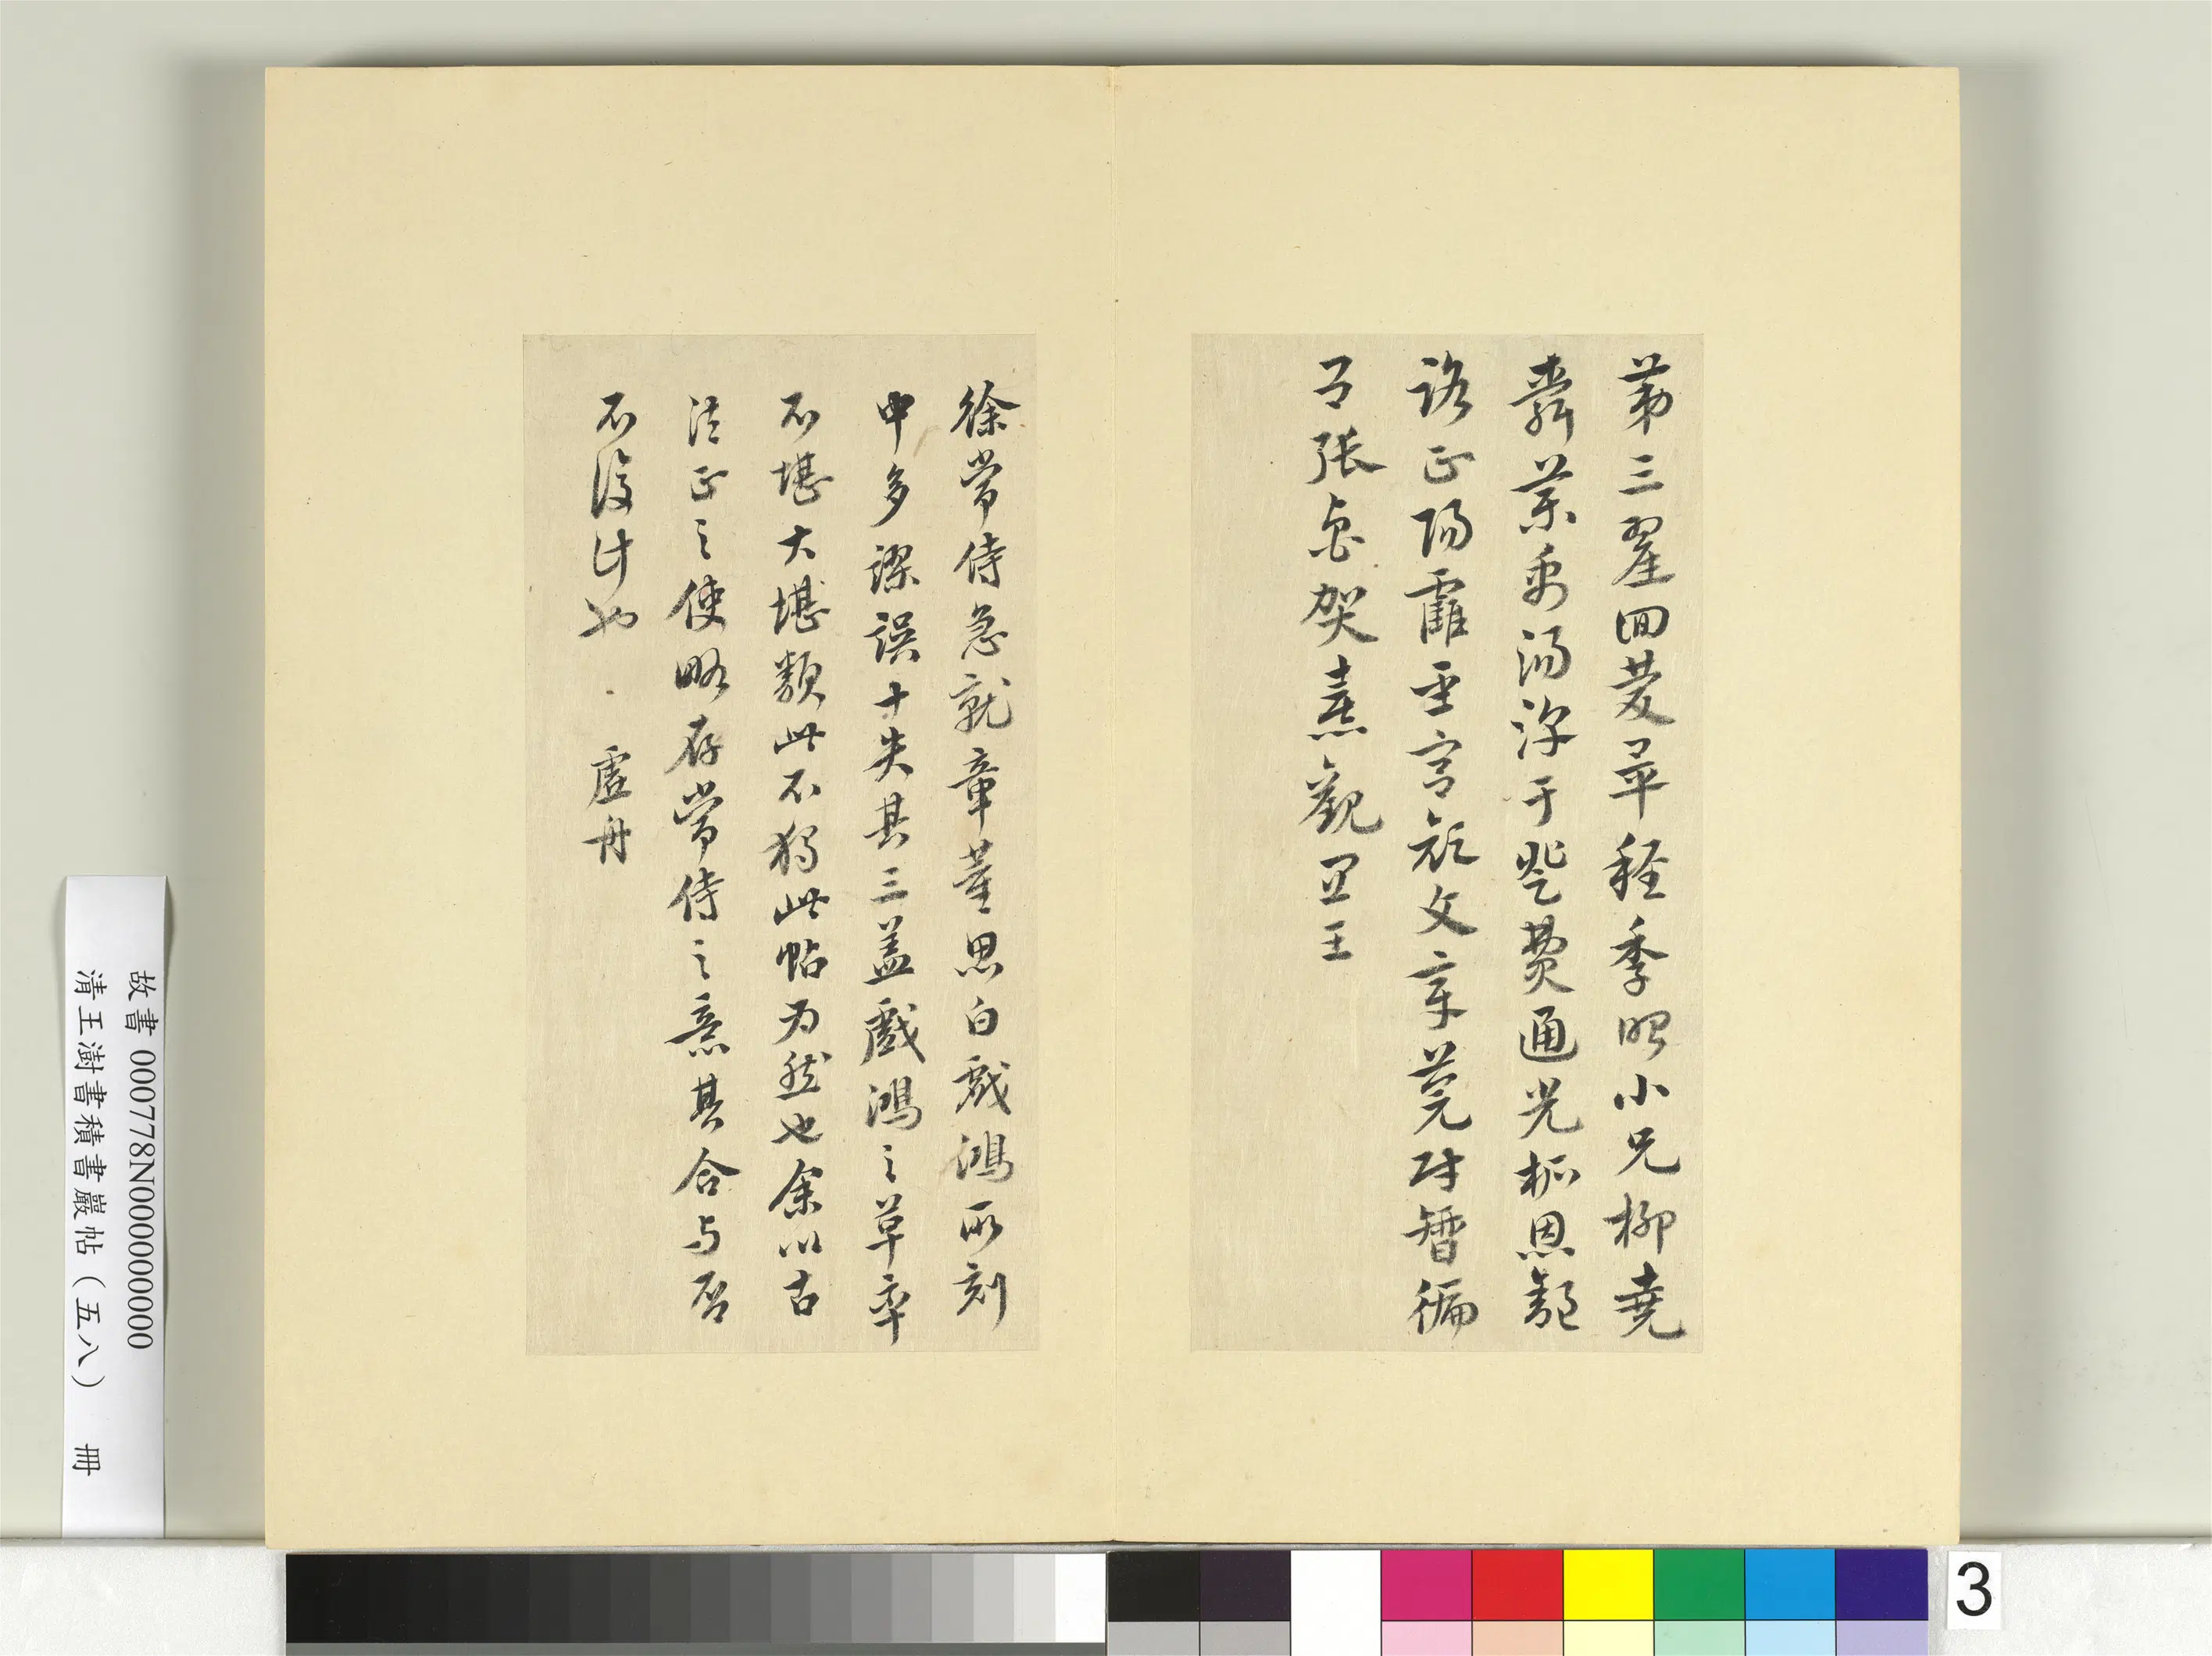 第三翟回慶畢稚季昭小兄柳堯
舜藥禹湯淳于登費通光柘恩舒
路正陽霍聖宮顏文章莞財智偏
呂張魯賀熹觀宜王
徐常侍急就章董思白戲鴻所刻
中多謬誤十失其三蓋戲鴻之草率
不堪大堪類此不獨此帖为然也余以古
法正之使略存常侍之意其合与否
不復計也 虛舟
故書 000778N000000000
清王澍書積書巖帖（五八） 冊
3